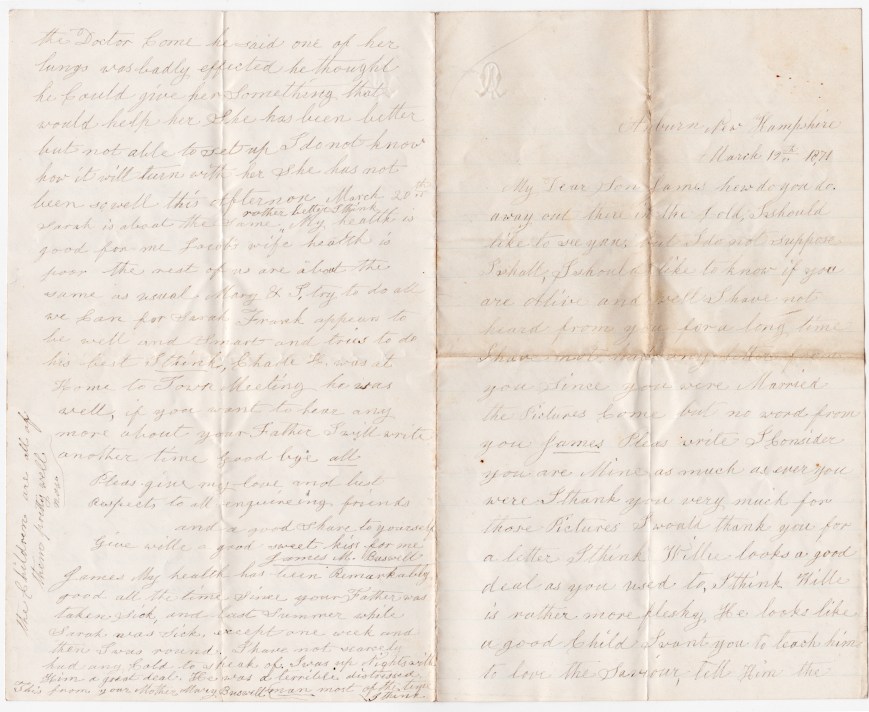 Auburn New Hampshire
March 19th 1871
My Dear Son James how do you do.
away out there in the Cold, I should
like to see you, but I do not suppose
I shall, I should like to know if you
are Alive and well I have not
heard from you for a long time
I hav not had any letter from
you Since you were Married
the Pictures Come but no word from
you James Pleas write I Consider
you are Mine as much as ever you
were I thank you very much for
those Pictures I would thank you for
a letter I think Willie looks a good
deal as you used to, I think Wille
is rather more fleshy, He looks like
a good Child I want you to teach him
to love the Saviour, till Him the
the Doctor Come he said one of her
lungs was badly effected he thought
he Could give her Something that
would help her She has been better
but not able to set up I do not know
how it will turn with her She has not
been so well this Afternon March 20th
rother better I think
Sarah is about the same, My health is
good for me Jacobs wife health is
poor the rest of us are about the
same as usual, Mary & I, try to do all
we Can for Sarah Frank appears to
be well and Smart and tries to do
his best I think, F. was at
Home to Town Meeting he was
well, if you want to hear any
more about your Father I wyll write
another time Good bye all
Pleas give my love and best
respects to all enquireing friends
and a good Share to yourself
Give wille a good sweet kiss for me
James M. Buswell
James My health has been Remarkably
good all the time Since your Father was
taken sick, and last Summer while
Sarah was Sick, except one week and
then I was round. I have not scarcely
had any Cold to speak of I was up nights with
Him a great deal. He was a terrible distressed
This from your Mother Mary Buswell man most of the time
I think
the Children are all of
them pretty well
now